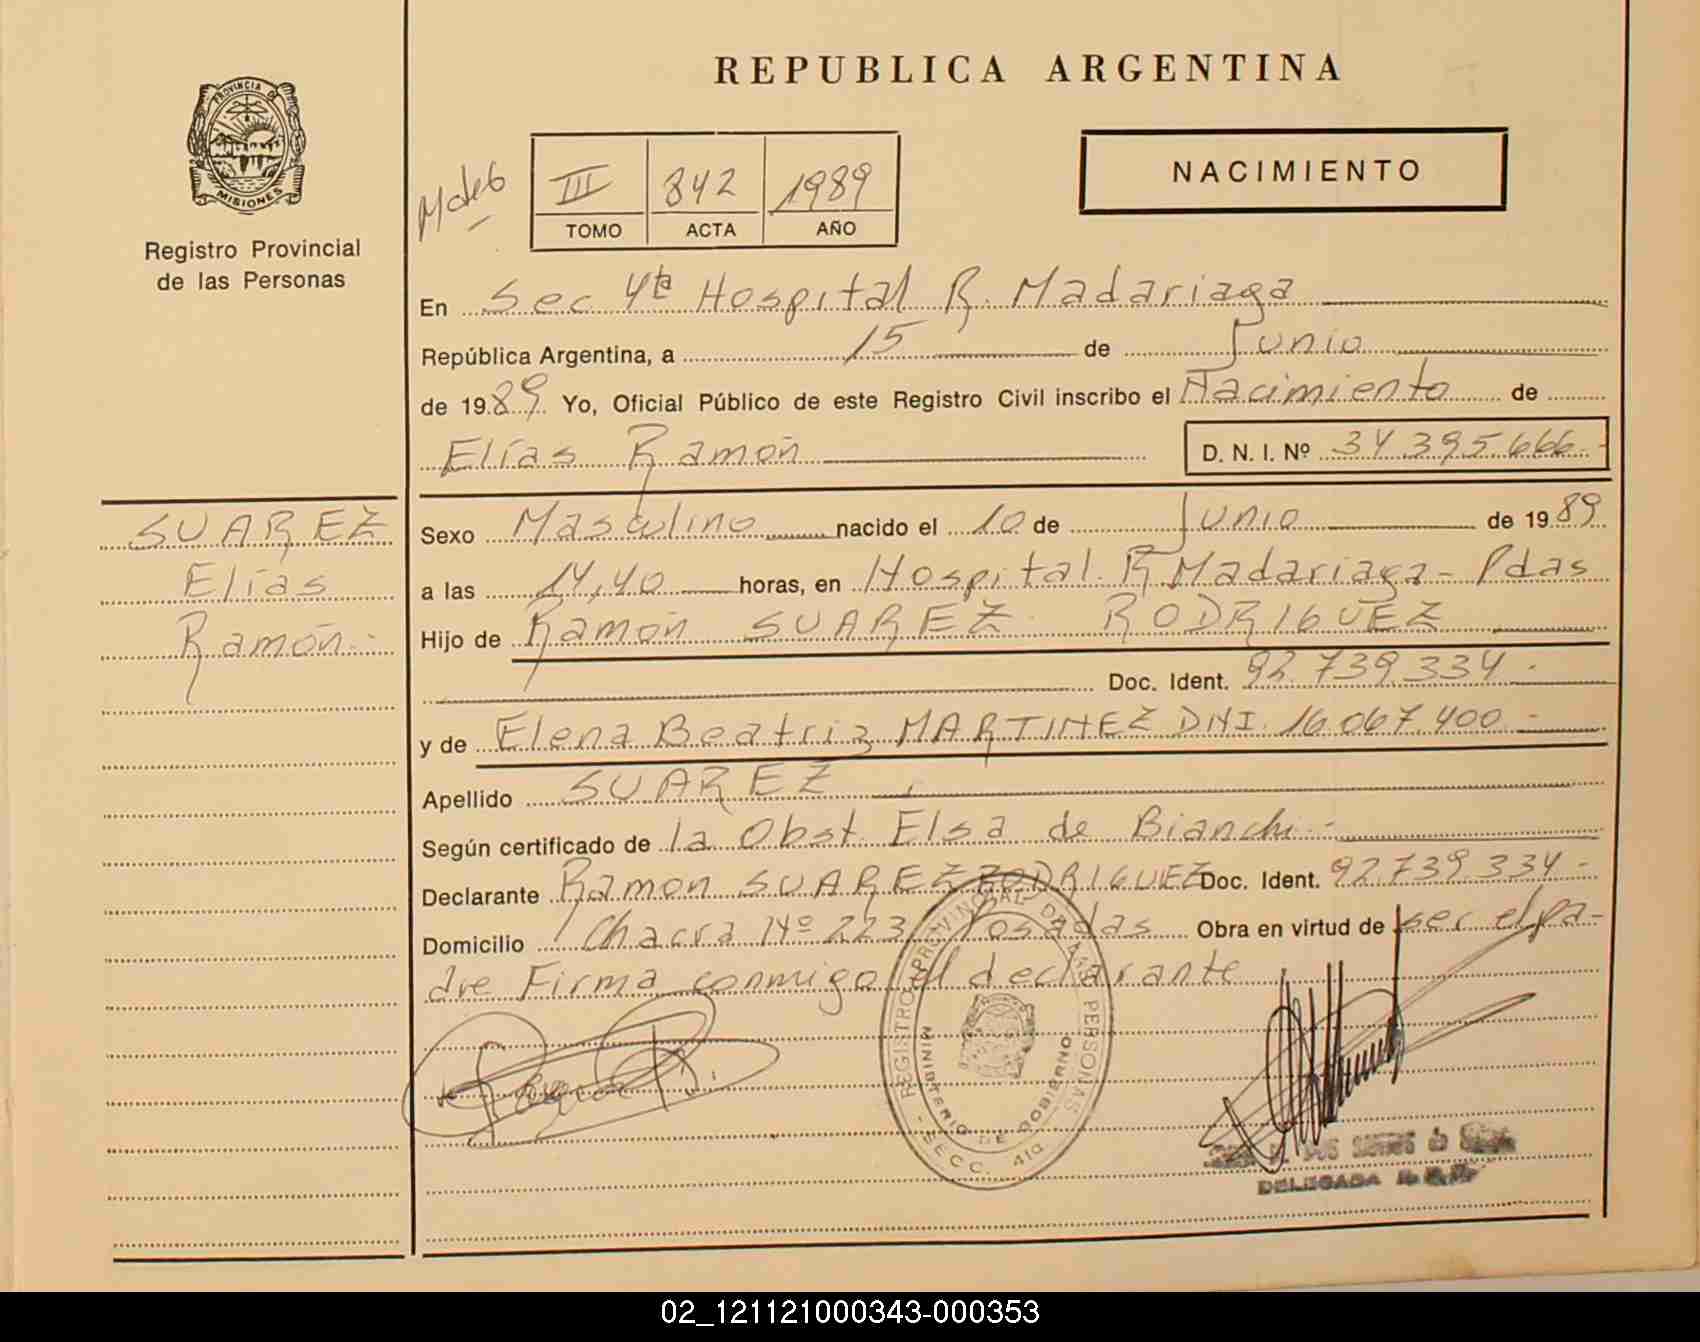 REPUBLICA ARGENTINA
PROVINCIA DE
MISIONES
Registro Provincial
de las Personas
III 842 1989
TOMO ACTA AÑO
NACIMIENTO
En Sec 4ta Hospital R. Madariaga
República Argentina, a 15 de Junio
de 1989. Yo, Oficial Público de este Registro Civil inscribo el Nacimiento de
Elías Ramón D. N. I. Nº 34.395.666.-
SUAREZ
Elías
Ramón.-
Sexo Masculino nacido el 10 de Junio de 1989
a las 14,40 horas, en Hospital R. Madariaga - Pdas
Hijo de Ramón SUAREZ RODRIGUEZ
Doc. Ident. 92.739.334.-
y de Elena Beatriz MARTINEZ DNI. 16.067.400.-
Apellido SUAREZ
Según certificado de la Obst. Elsa de Bianchi.-
Declarante Ramon SUAREZ RODRIGUEZ Doc. Ident. 92.739.334.-
Domicilio Chacra Nº 223 Posadas Obra en virtud de ser el pa-
dre Firma conmigo el declarante
REGISTRO PROVINCIAL DE LAS PERSONAS
MINISTERIO DE GOBIERNO
- SECC. 4ta -
DELEGADA
02_121121000343-000353